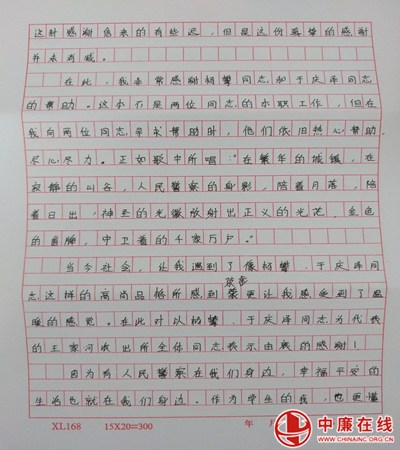 这时感谢信来的有些迟，但是这份真挚的感谢
并未有减。
在此，我非常感谢杨攀同志和于庆泽同志
的帮助。这本不是两位同志的本职工作，但在
我向两位同志寻求帮助时，他们依旧热心帮助，
尽心尽力。正如歌中所唱：“在繁华的城镇，在
寂静的山谷，人民警察的身影，陪着月落，陪
着日出，神圣的光徽放射出正义的光芒，金色
的盾牌，守卫着的千家万户。”
当今社会，让我遇到了像杨攀、于庆泽同
志这样的高尚品格所感到荣幸更让我感受到了温
暖的感觉。在此对以杨攀、于庆泽同志为代表
的王家河派出所全体同志表示由衷的感谢！
因为有人民警察在我们身边，幸福平安的
生活也就在我们身边。作为学生的我，也更懂
XL168 15X20=300 年 月
中廉在线
WWW.CHINAINC.ORG.CN